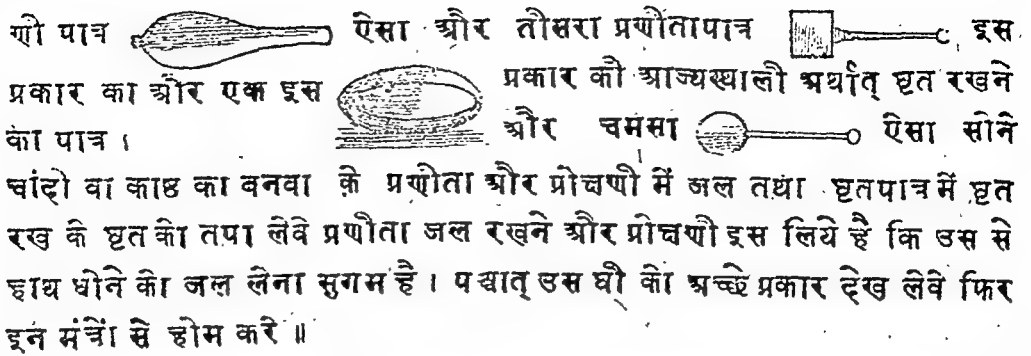 णी पात्र ऐसा और तीसरा प्रणीतापात्र इस
प्रकार का और एक इस प्रकार की आज्यस्थाली अर्थात् घृत रखने
का पात्र । और चमसा ऐसा सोने
चांदी वा काष्ठ का बनवा के प्रणीता और प्रोक्षणी में जल तथा घृतपात्र में घृत
रख के घृत को तपा लेवे प्रणीता जल रखने और प्रोक्षणी इस लिये है कि उस से
हाथ धोने को जल लेना सुगम है । पश्चात् उस घी को अच्छे प्रकार देख लेवे फिर
इन मंत्रों से होम करे ॥